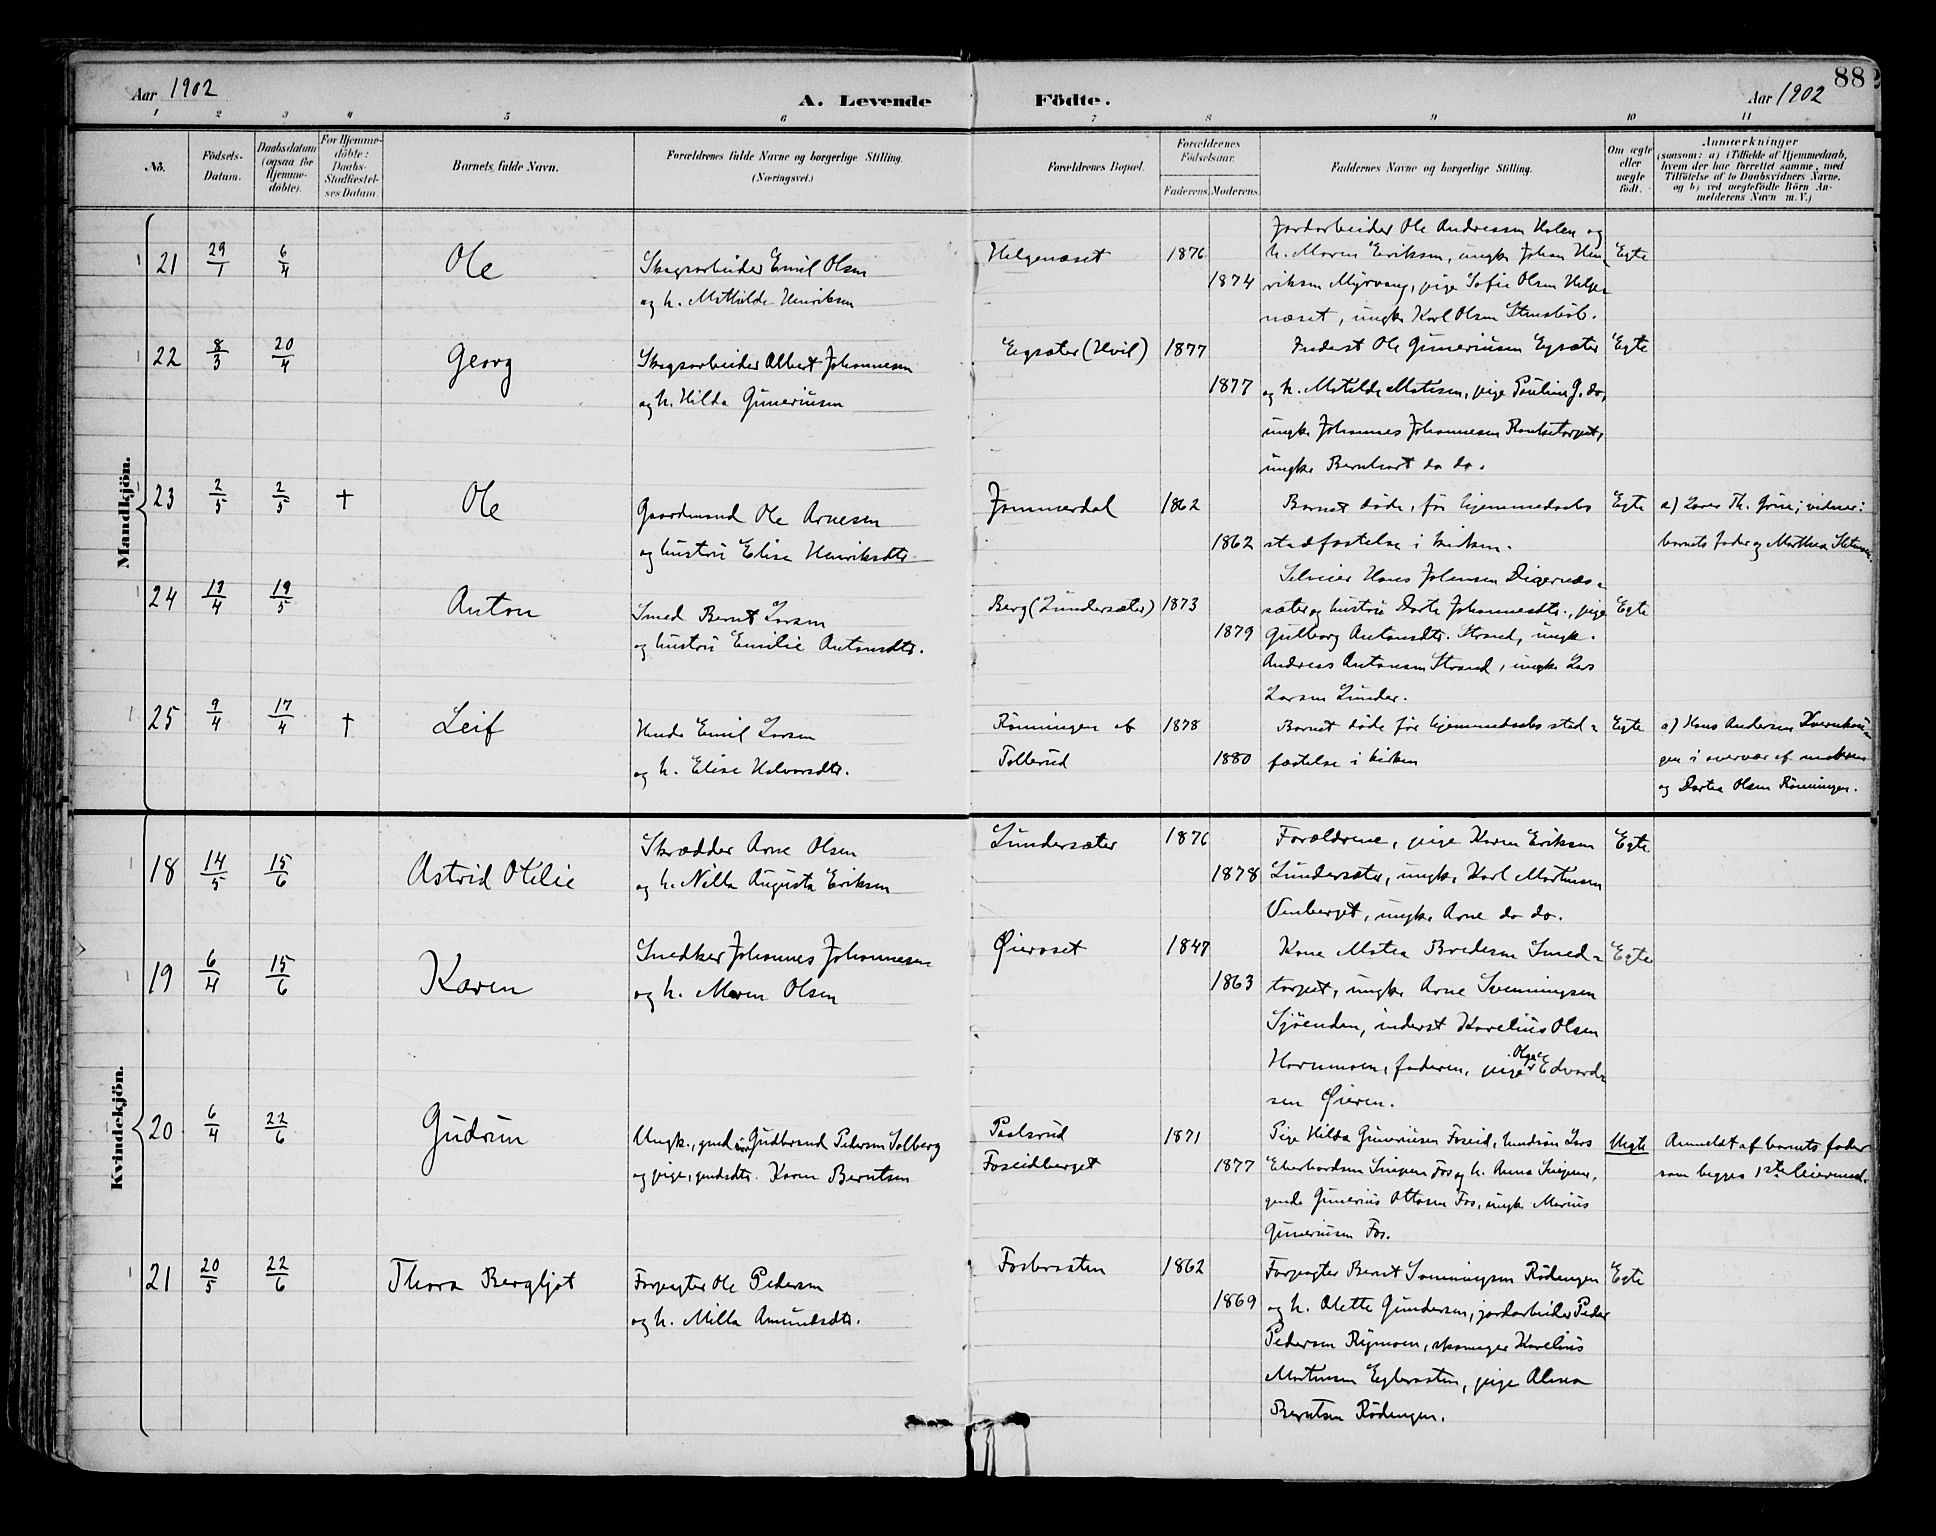 88
Aar 1902
A. Levende Födte.
Aar 1902
1 2 3 4 5 6 7 8 9 10 11
No.
Födsels-
Datum.
Daabsdatum
(ogsaa for
Hjemme-
döbte).
For Hjemme-
döbte:
Daabs-
Stadfæstel-
ses Datum
Barnets fulde Navn.
Forældrenes fulde Navne og borgerlige Stilling.
(Næringsvei.)
Forældrenes Bopæl.
Forældrenes
Födselsaar.
Faderens. Moderens.
Faddernes Navne og borgerlige Stilling.
Om ægte
eller
uægte
født.
Anmærkninger
(saasom: a) i Tilfælde af Hjemmedaab,
hvem der har forrettet samme, med
Tilföielse af to Daabsvidners Navne.
og b) ved uægtefödte Börn An-
melderens Navn m. V.)
Mandkjön.
21 29/1 6/4 Ole
Skogsarbeider Emil Olsen
og h. Mathilde Henriksen
Helgenæset 1876
1874
Jordarbeider Ole Andreassen Holen og
h. Maren Eriksen, ungk. Johan Hen-
riksen Myrvang, pige Sofie Olsen Helge-
næset, ungk. Karl Olsen Stensböl.
Egte
22 8/3 20/4 Georg
Skogsarbeider Albert Johannesen
og h. Hilda Guneriusen
Egsæter (Hvil) 1877
1877
Inderst Ole Guneriusen Egsæter
og h. Matilde Matisen, pige Pauline G. do,
ungk. Johannes Johannesen
ungk. Bernhart do do.
Egte
23 2/5 2/5 † Ole
Gaardmand Ole Arnesen
og hustru Elise Henriksdtr.
Jammerdal 1862
1862
Barnet döde, för hjemmedaabs
stadfæstelse i kirken.
Egte
a) Lærer Th. Grue; vidner:
barnets fader og Marthea
24 13/4 19/5 Anton
Smed Bernt Larsen
og hustru Emilie Antonsdtr.
Berg (Lundersæter) 1873
1879
Selveier Hans Johnsen Digernæs-
sæter og hustru Dorte Johannesdtr., pige
Gulborg Antonsdtr. Strand, ungk.
Andreas Antonsen Strand, ungk. Lars
Larsen Lunder.
Egte
25 9/4 17/4 † Leif
Emil Larsen
og h. Elise Halvorsdtr.
Rönningen af
Tollerud
1878
1880
Barnet döde för hjemmedaabs stad-
fæstelse i kirken
Egte
a) Hans Andersen
gen i overvær af moderen
og Dortea Olsen Rönningen.
Kvindekjön.
18 14/5 15/6 Astrid Otilie
Skrædder Arne Olsen
og h. Nilla Augusta Eriksen
Lundersæter 1876
1878
Forældrene, pige Karen Eriksen
Lundersæter, ungk. Karl Martinsen
Venberget, ungk. Arne do do.
Egte
19 6/4 15/6 Karen
Snedker Johannes Johannesen
og h. Maren Olsen
Øieraset 1847
1863
Kone Matea Bredesen Smed-
torpet, ungk. Arne Svenningsen
Sjöenden, inderst Karelius Olsen
Hornmoen, faderen, pige Olga Edvard-
sen Øieren.
Egte
20 6/4 22/6 Gudrun
Ungk., gmdsön Gudbrand Pedersen Solberg
og pige, gmdsdtr. Karen Berntsen
Paalsrud
Foseidberget
1871
1877
Pige Hilda Guneriusen Foseid, Lars
Eberhardsen Snipen Fos og h. Anna Snipen,
gmds Gunerius Ottosen Fos, ungk. Marius
Gunerius­en Fos.
Uegte
Anmeldt af barnets fader
som begges 1ste leiermaal.
21 20/5 22/6 Thora Bergljot
Forpagter Ole Pedersen
og h. Milla Amundsdtr.
Fosbraaten 1862
1869
Forpagter Bernt Svenningsen Rödengen
og h. Olette Gundersen, jordarbeider Peder
Pedersen Rymoen, skomager Karelius
Martinsen Egbraaten, pige Alma
Berntsen Rödengen.
Egte